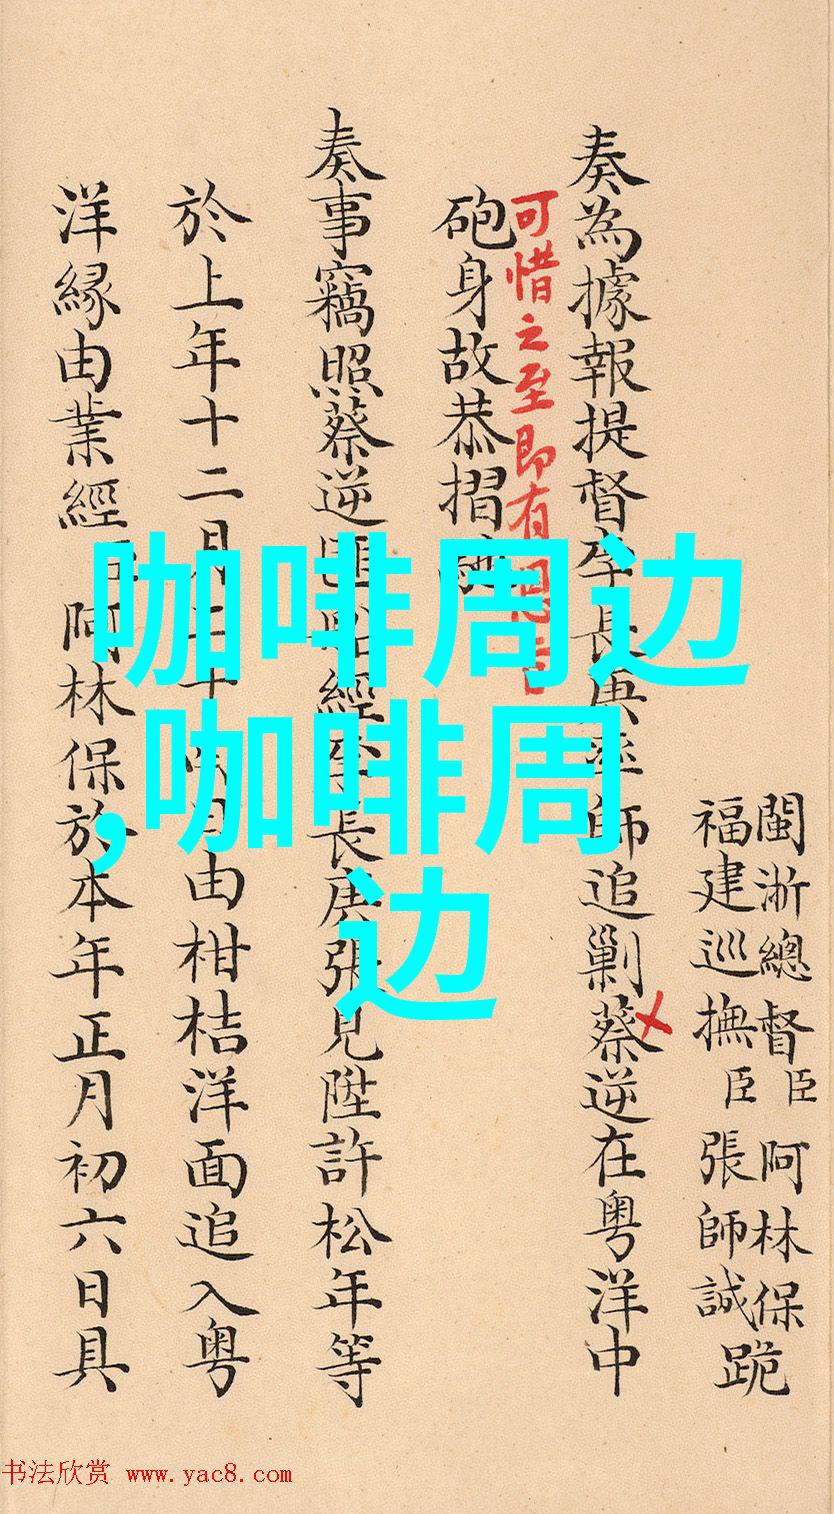 閩浙總督臣阿林保
福建巡撫臣張師誠跪
奏為據報提督李長庚率師追剿蔡逆在粤洋中
可惜之至即有恩旨
砲身故恭摺
奏事竊照蔡逆匪船經李長庚張見陞許松年等
於上年十二月二十日由柑桔洋面追入粤
洋緣由業經臣阿林保於本年正月初六日具
咖啡周边
,咖啡周
边
书法欣赏 www.yac8.com